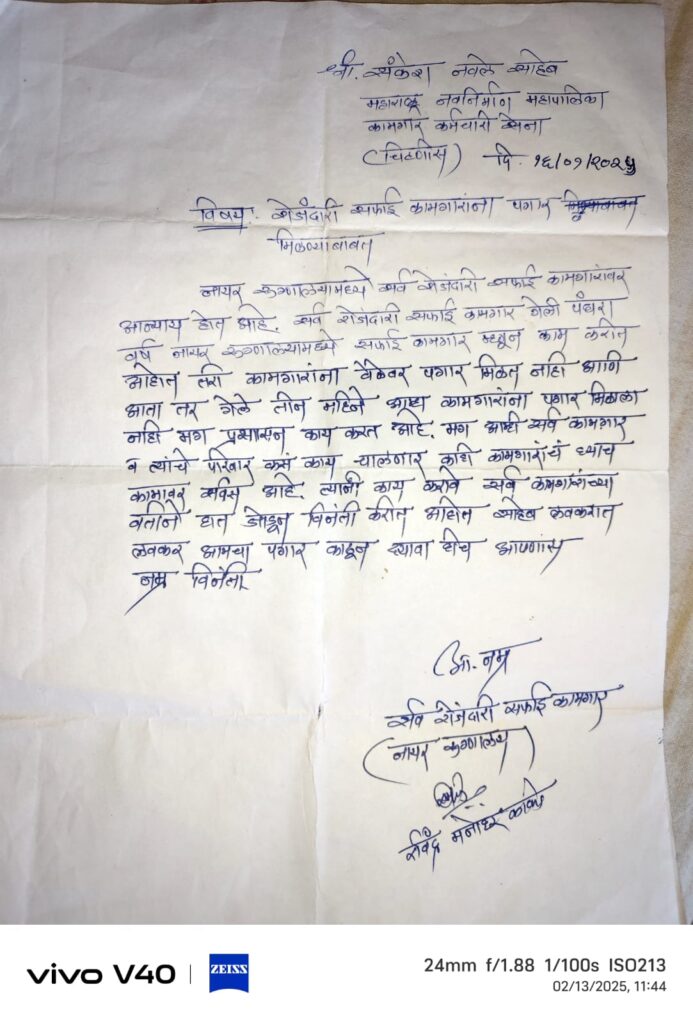 श्री. संकेश नवले साहेब
महाराष्ट्र नवनिर्माण महापालिका
कामगार कर्मचारी सेना
(चिटणीस) दि. १६/०१/२०२५
विषय: रोजंदारी सफाई कामगारांना पगार
मिळण्याबाबत
नायर रुग्णालयामध्ये सर्व रोजंदारी सफाई कामगारांवर
अन्याय होत आहे. सर्व रोजंदारी सफाई कामगार गेली पंधरा
वर्ष नायर रुग्णालयामध्ये सफाई कामगार म्हणून काम करीत
आहोत तरी कामगारांना वेळेवर पगार मिळत नाही आणि
आता तर गेले तीन महिने आम्हा कामगारांना पगार मिळाला
नाही मग प्रशासन काय करत आहे. मग आम्ही सर्व कामगार
व त्यांचे परिवार कसं काय चालणार काही कामगारांचं ह्याच
कामावर सर्वस आहे. त्यांनी काय करावे सर्व कामगारांच्या
वतीने हात जोडून विनंती करीत आहोत साहेब लवकरात
लवकर आमचा पगार काढून द्यावा हीच आपणांस
नम्र विनंती
आ. नम्र
सर्व रोजंदारी सफाई कामगार
(नायर रुग्णालय)
रविंद्र मनोहर कांबळे
vivo V40 | ZEISS
24mm f/1.88 1/100s ISO213
02/13/2025, 11:44